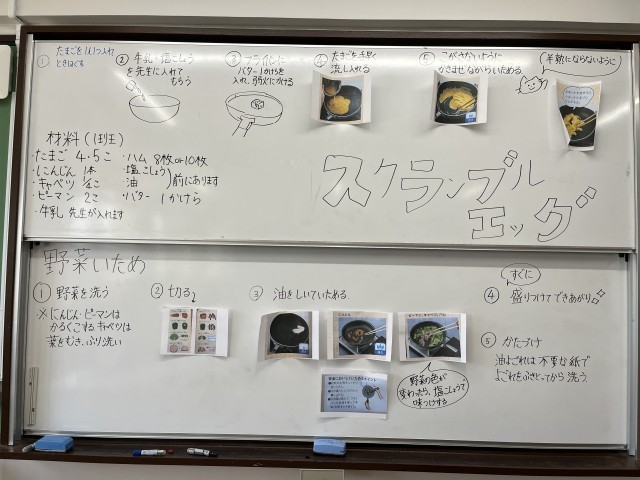 ① たまごを1人1つ入れ
ときほぐす
② 牛乳・塩こしょう
を先生に入れて
もらう
③ フライパンに
バター1かけらを
入れ、弱火にかける
④ たまごを手早く
流し入れる
⑤ こがさないように
かきまぜながらいためる
半熟にならないように
材料(1班)
・たまご 4・5こ
・にんじん 1本
・キャベツ 1/4こ
・ピーマン 2こ
・牛乳 先生が入れます
・ハム 8枚or10枚
・塩こしょう
・油
前にあります
・バター 1かけら
スクランブル
エッグ
野菜いため
① 野菜を洗う
※にんじん・ピーマンは
かるくこする キャベツは
葉をむき、ふり洗い
② 切る
③ 油をしいていためる
野菜の色が
変わったら、塩こしょうで
味つけする
すぐに
④ 盛りつけてできあがり
⑤ かたづけ
油よごれは不要な紙で
よごれをふきとってから洗う